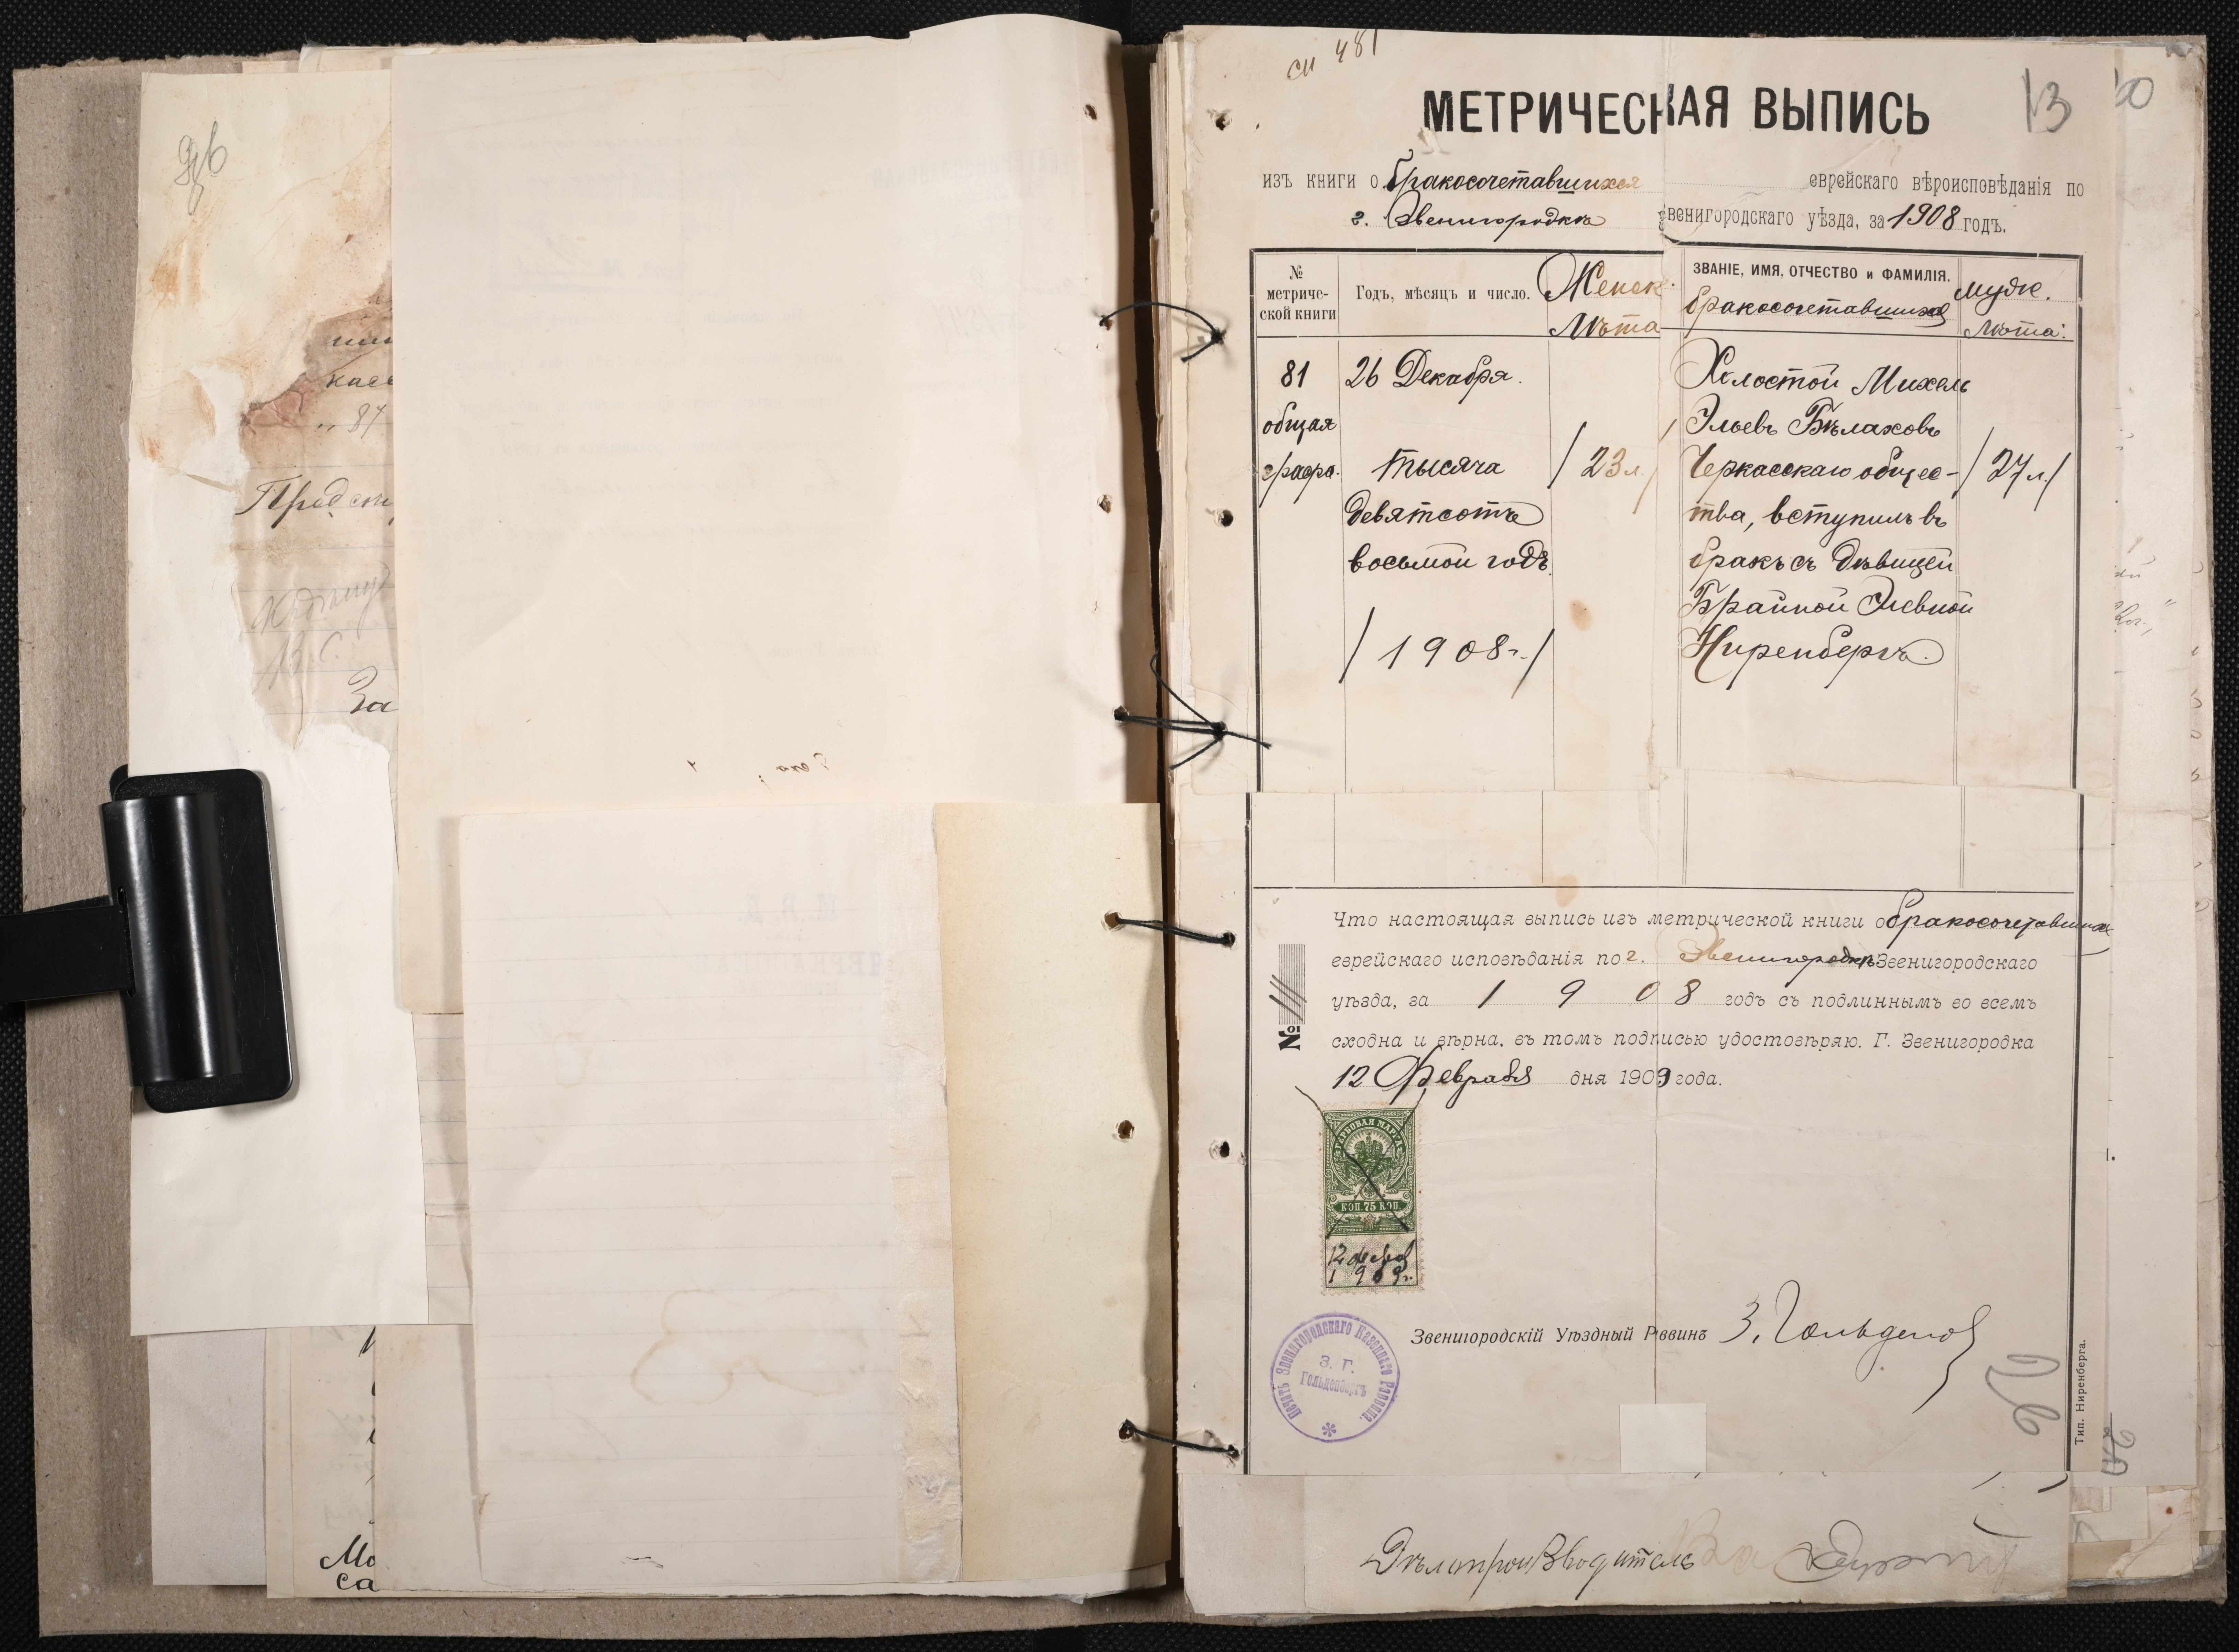 96
каст
„ 87
Предст
За
Мо
са
см 481
МЕТРИЧЕСКАЯ ВЫПИСЬ
13
изъ книги о бракосочетавшихся еврейскаго вѣроисповѣданія по
г. Звенигородкѣ Звенигородскаго уѣзда, за 1908 годъ.
№ метриче-ской книги
Годъ, мѣсяцъ и число.
Женск. Лѣта
ЗВАНІЕ, ИМЯ, ОТЧЕСТВО и ФАМИЛІЯ. бракосочетавшихся
Муже. Лѣта:
81 26 Декабря. Холостой Михель
общая Эльевъ Бѣлаховъ
графа. тысяча /23 л./ Черкасскаго общес- /27 л./
девятсотъ тва, вступилъ въ
восьмой годъ. бракъ съ дѣвицей
Брайной Элевной
/1908 г./ Ниренбергъ.
Что настоящая выпись изъ метрической книги о бракосочетавшихся
еврейскаго исповѣданія по г. Звенигородкѣ Звенигородскаго
уѣзда, за 1908 годъ съ подлиннымъ во всемъ
сходна и вѣрна, въ томъ подписью удостовѣряю. Г. Звенигородка
12 Февраля дня 1909 года.
№ 111
ГЕРБОВАЯ МАРКА
КОП. 75 КОП.
12 февр
1909 г.
Звенигородскій Уѣздный Раввинъ З. Гольденб
Печать Звенигородскаго Казеннаго Раввина.
З. Г.
Гольденбергъ
Тип. Ниренберга.
Дѣлопроизводитель